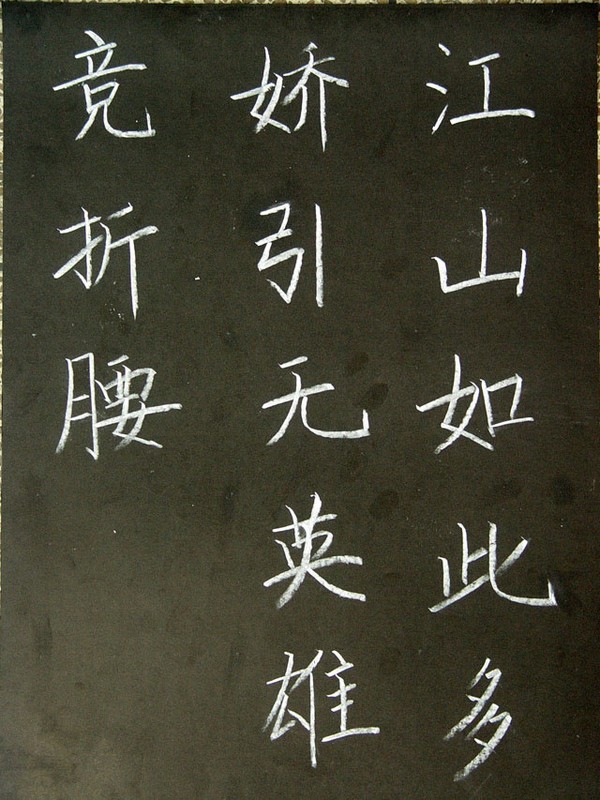 江山如此多
娇引无英雄
竞折腰